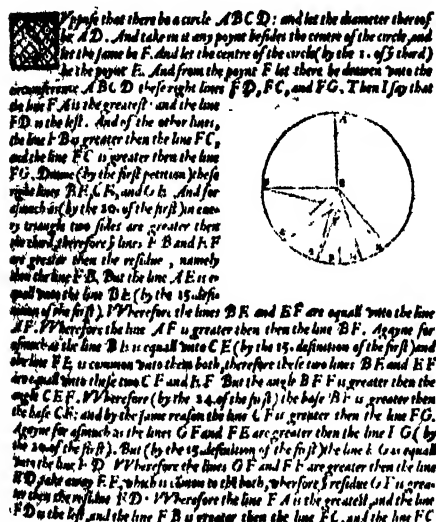 Vppose that there be a circle A B C D: and let the diameter therof
be A D. And take in it any poynt besides the centre of the circle, and
let the same be F. And let the centre of the circle (by the 1. of ỹ third)
be the poynt E. And from the poynt F let there be drawen vnto the
circumference A B C D these right lines F D, F C, and F G. Then I say that
the line F A is the greatest: and the line
F D is the lest. And of the other lines,
the line F B is greater then the line F C,
and the line F C is greater then the line
F G. Drawe (by the first petition) these
right lines B E, C E, and G E. And for
asmuch as (by the 20. of the first) in eue-
ry triangle two sides are greater then
the third, therefore ỹ lines E B and E F
are greater then the residue, namely
then the line F B. But the line A E is e-
quall vnto the line B E (by the 15. defi-
nition of the first). VVherefore the lines B E and E F are equall vnto the line
A F. VVherefore the line A F is greater then then the line B F. Agayne for
asmuch as the line B E is equall vnto C E (by the 15. definition of the first) and
the line F E is common vnto them both, therefore these two lines B E and E F
are equall vnto these two C E and E F. But the angle B E F is greater then the
angle C E F. VVherefore (by the 24. of the first) the base B F is greater then
the base C F: and by the same reason the line C F is greater then the line F G.
Agayne for asmuch as the lines G F and F E are greater then the line E G (by
the 20. of the first). But (by the 15. definition of the first) the line E G is equall
vnto the line E D. VVherefore the lines G F and F E are greater then the line
E D, take away E F, which is common to thē both, wherfore ỹ residue G F is grea-
ter then the residue F D. VVherefore the line F A is the greatest, and the line
F D is the lest, and the line F B is greater then the line F C, and the line F C
A
B
E
F